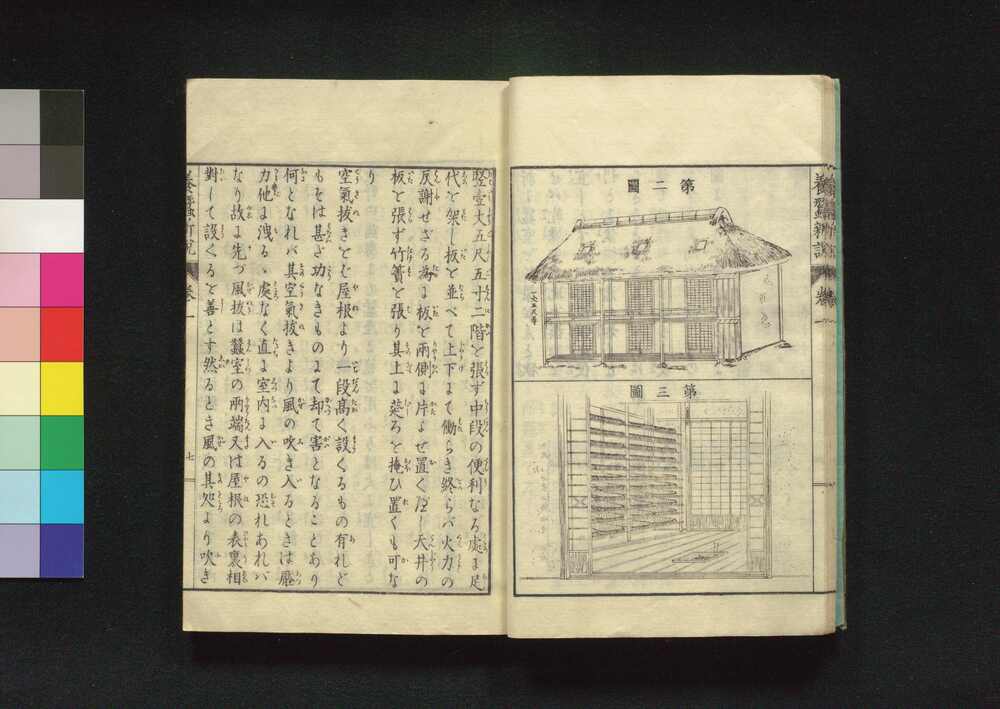 養蠶新説 卷一
第二圖
第三圖
竪壹丈五尺五寸二階と張ず中段の便利なる處に足
代を架し板を並べて上下まで働らき終らバ火力の
反謝せざる爲に板を兩側に片よせ置くべし天井の
板を張ず竹簀を張り其上に莚を掩ひ置くも可な
り
空氣拔きとて屋根より一段髙く設くるもの有れど
もそは甚ざ功なきものにて却て害となることあり
何となれバ其空氣拔きより風の吹き入るときは嚴
力他に洩るゝ處なく直に室内に入るの恐れあれバ
なり故に先づ風拔は蠶室の兩端又は屋根の表裏相
對して設くるを善とす然るとき風の其処より吹き
卷一
七